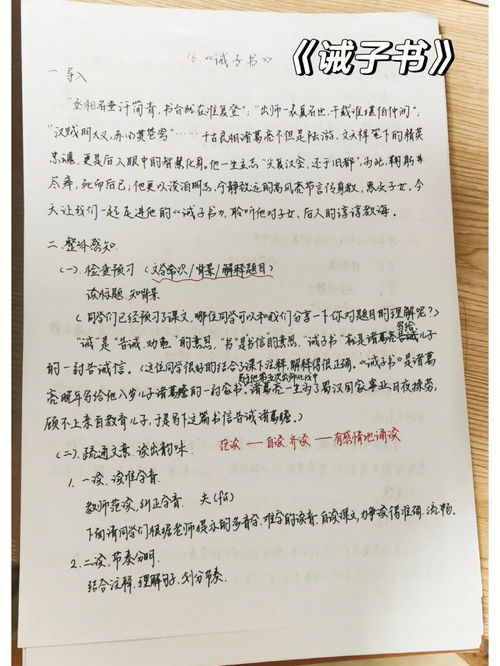 《诫子书》
16 《诫子书》
一 导入
"丞相名垂汗简青，书台犹在谁复登"；"出师一表真名世，千载谁堪伯仲间"；
"汉贼明大义，赤心贯苍穹"……千古良相诸葛亮不但是陆游、文天祥笔下的精英
忠魂，更是后人眼中的智慧化身。他一生立志"兴复汉室，还于旧都"，为此，鞠躬
尽瘁，死而后已；他更以淡泊明志、宁静致远的高风亮节言传身教，惠及子女。今
天让我们一起走进他的《诫子书》，聆听他对子女、后人的谆谆教诲。
二. 整体感知
(一). 检查预习（文学常识/背景/解释题目）
读标题，知背景
（同学们已经预习了课文，哪位同学可以和我们分享一下你对题目的理解呢？）
写给
"诫"是"告诫、劝勉"的意思，"书"是书信的意思，"诫子书"就是诸葛亮告诫儿子
的一封告诫信。（这位同学很好的结合了课下注释，解释得很正确。《诫子书》是诸葛
亮晚年写给他八岁儿子诸葛瞻的一封家书。诸葛亮一生为了蜀汉国家事业日夜操劳，
顾不上亲自教育儿子，于是写下这篇书信告诫诸葛瞻。）
(二). 疏通文意，读出韵味. 范读——自读 齐读——有感情地诵读
1. 一读，读准字音.
教师范读，纠正字音. 夫(fú)
下面请同学们根据老师提示的多音字、难字的读音，自读课文，力争读得准确、流畅.
2. 二读，节奏分明.
结合注释，理解句子，划分节奏.